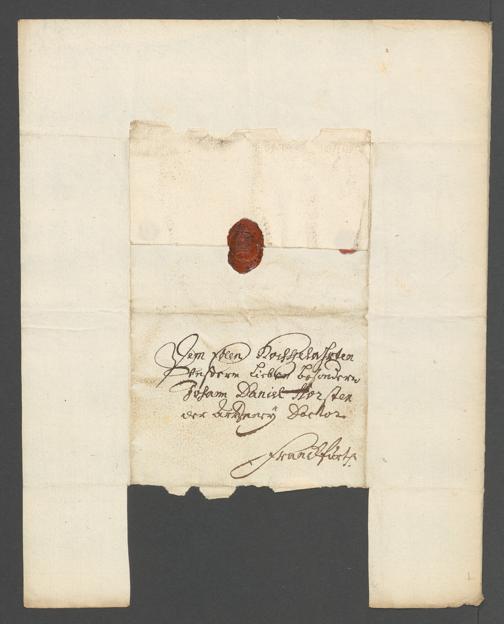 Dem Edlen Hochgelahrten
Unserm Lieben besondern
Johann Daniel Horsten
der Artzneÿ Doctor
Franckfurt